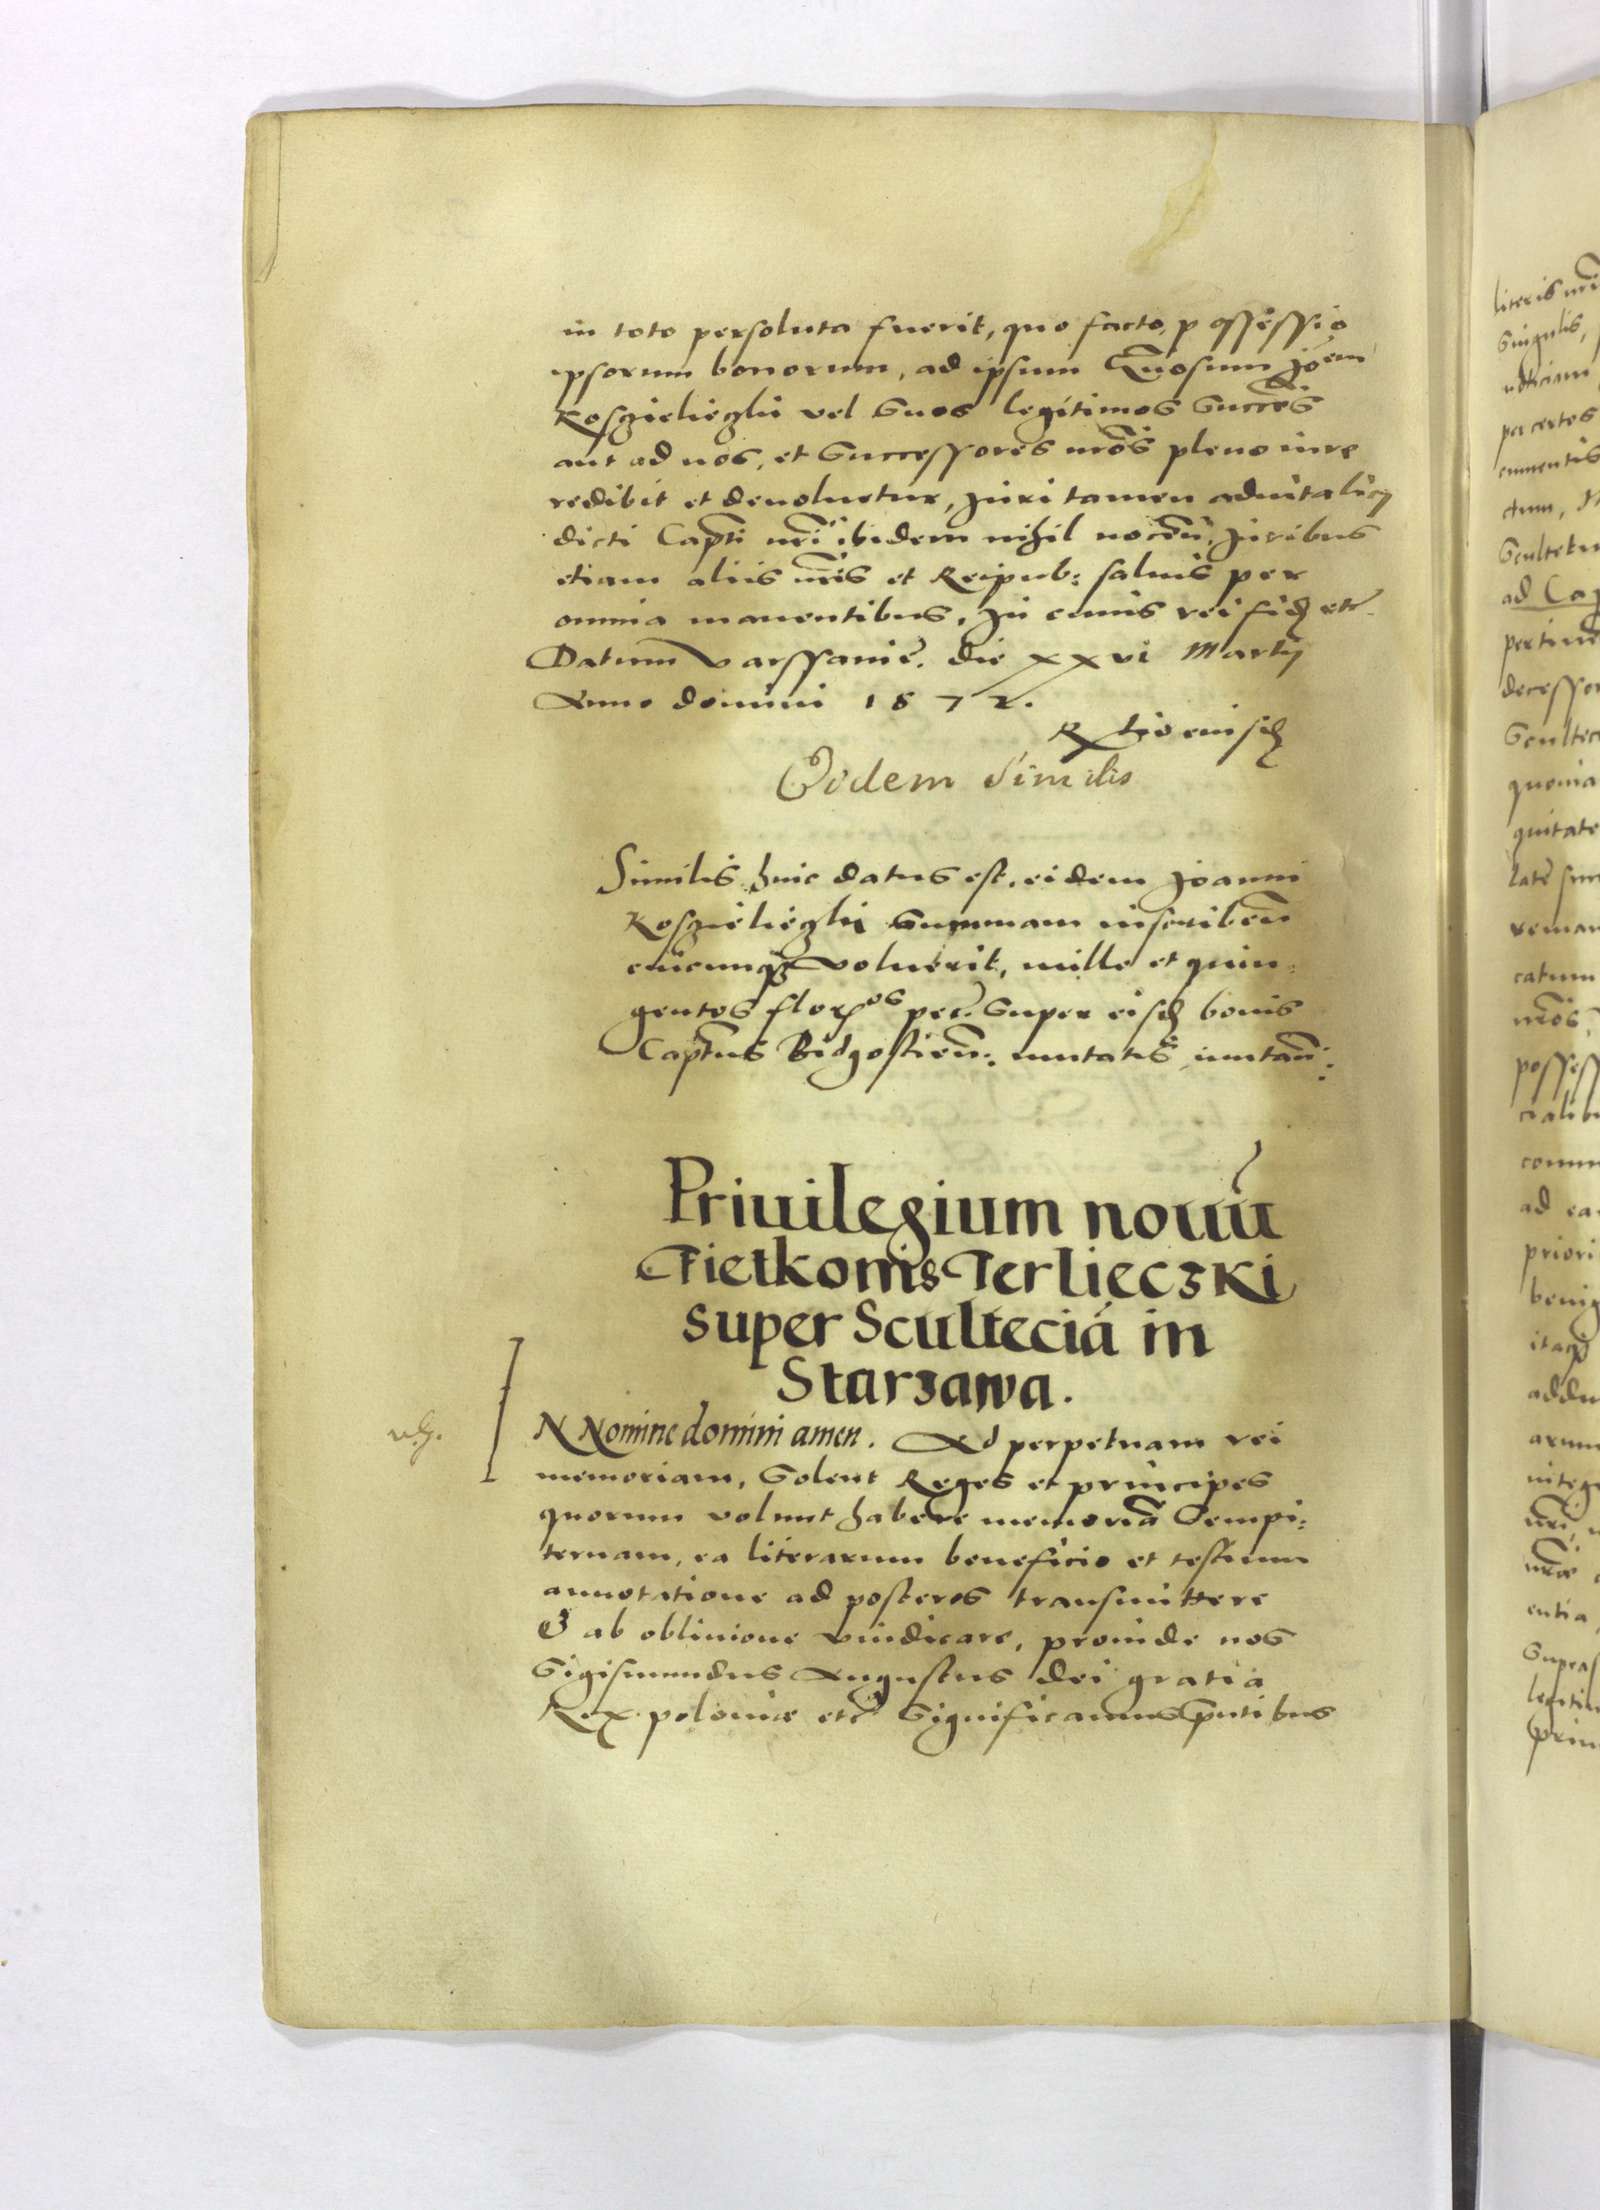 in toto persoluta fuerit, quo facto, possessio
ipsorum bonorum, ad ipsum Gn̄osum Joēm
Koszielieczki vel Suos legitimos Succēs
aut ad nos, et Successores nr̄os pleno iure
redibit et devoluetur, Juri tamen aduitalicÿ
dicti Capti nr̄i ibidem nihil nocēn, Juribus
etiam aliis nr̄is et Reipub: saluis per
omnia manentibus, In cuius rei fid etc̄
Datum varssauie. die xxvi Martÿ
Anno domini 1572.
Eidem Similis
Similis huic datus est, eidem Joanni
Koszielieczki Summam inscribēn
cuicunq voluerit, mille et quin:
gentos floros pec. Super eisd bonis
Captus Bidgostien̄: mutatis mutan̄:
Priuilegium nouū
Fietkonis Terlieczki
super Scultecią in
Starzawa.
IN Nomine domini amen. Ad perpetuam rei
memoriam, Solent Reges et principes
quorum volunt habere memoriā Sempi:
ternam, ea literarum beneficio et testium
annotatione ad posteros transmittere
& ab obliuione vindicare, proinde nos
Sigismundus Augustus dei gratia
Rex poloniæ etc̄ Significamus pn̄tibus
literis nr̄i
Singulis,
noticiam
per certos
ctum,
Scultetu
ad Cap
pertine
decessor
Scultec
quonia
quitate
late sun
reman
catum
nr̄os,
possess
cialibu
comm
ad ea
priori
benig
itaq
addu
arum
integ
nr̄i,
nr̄æ
entia
Supras
legitim
prin